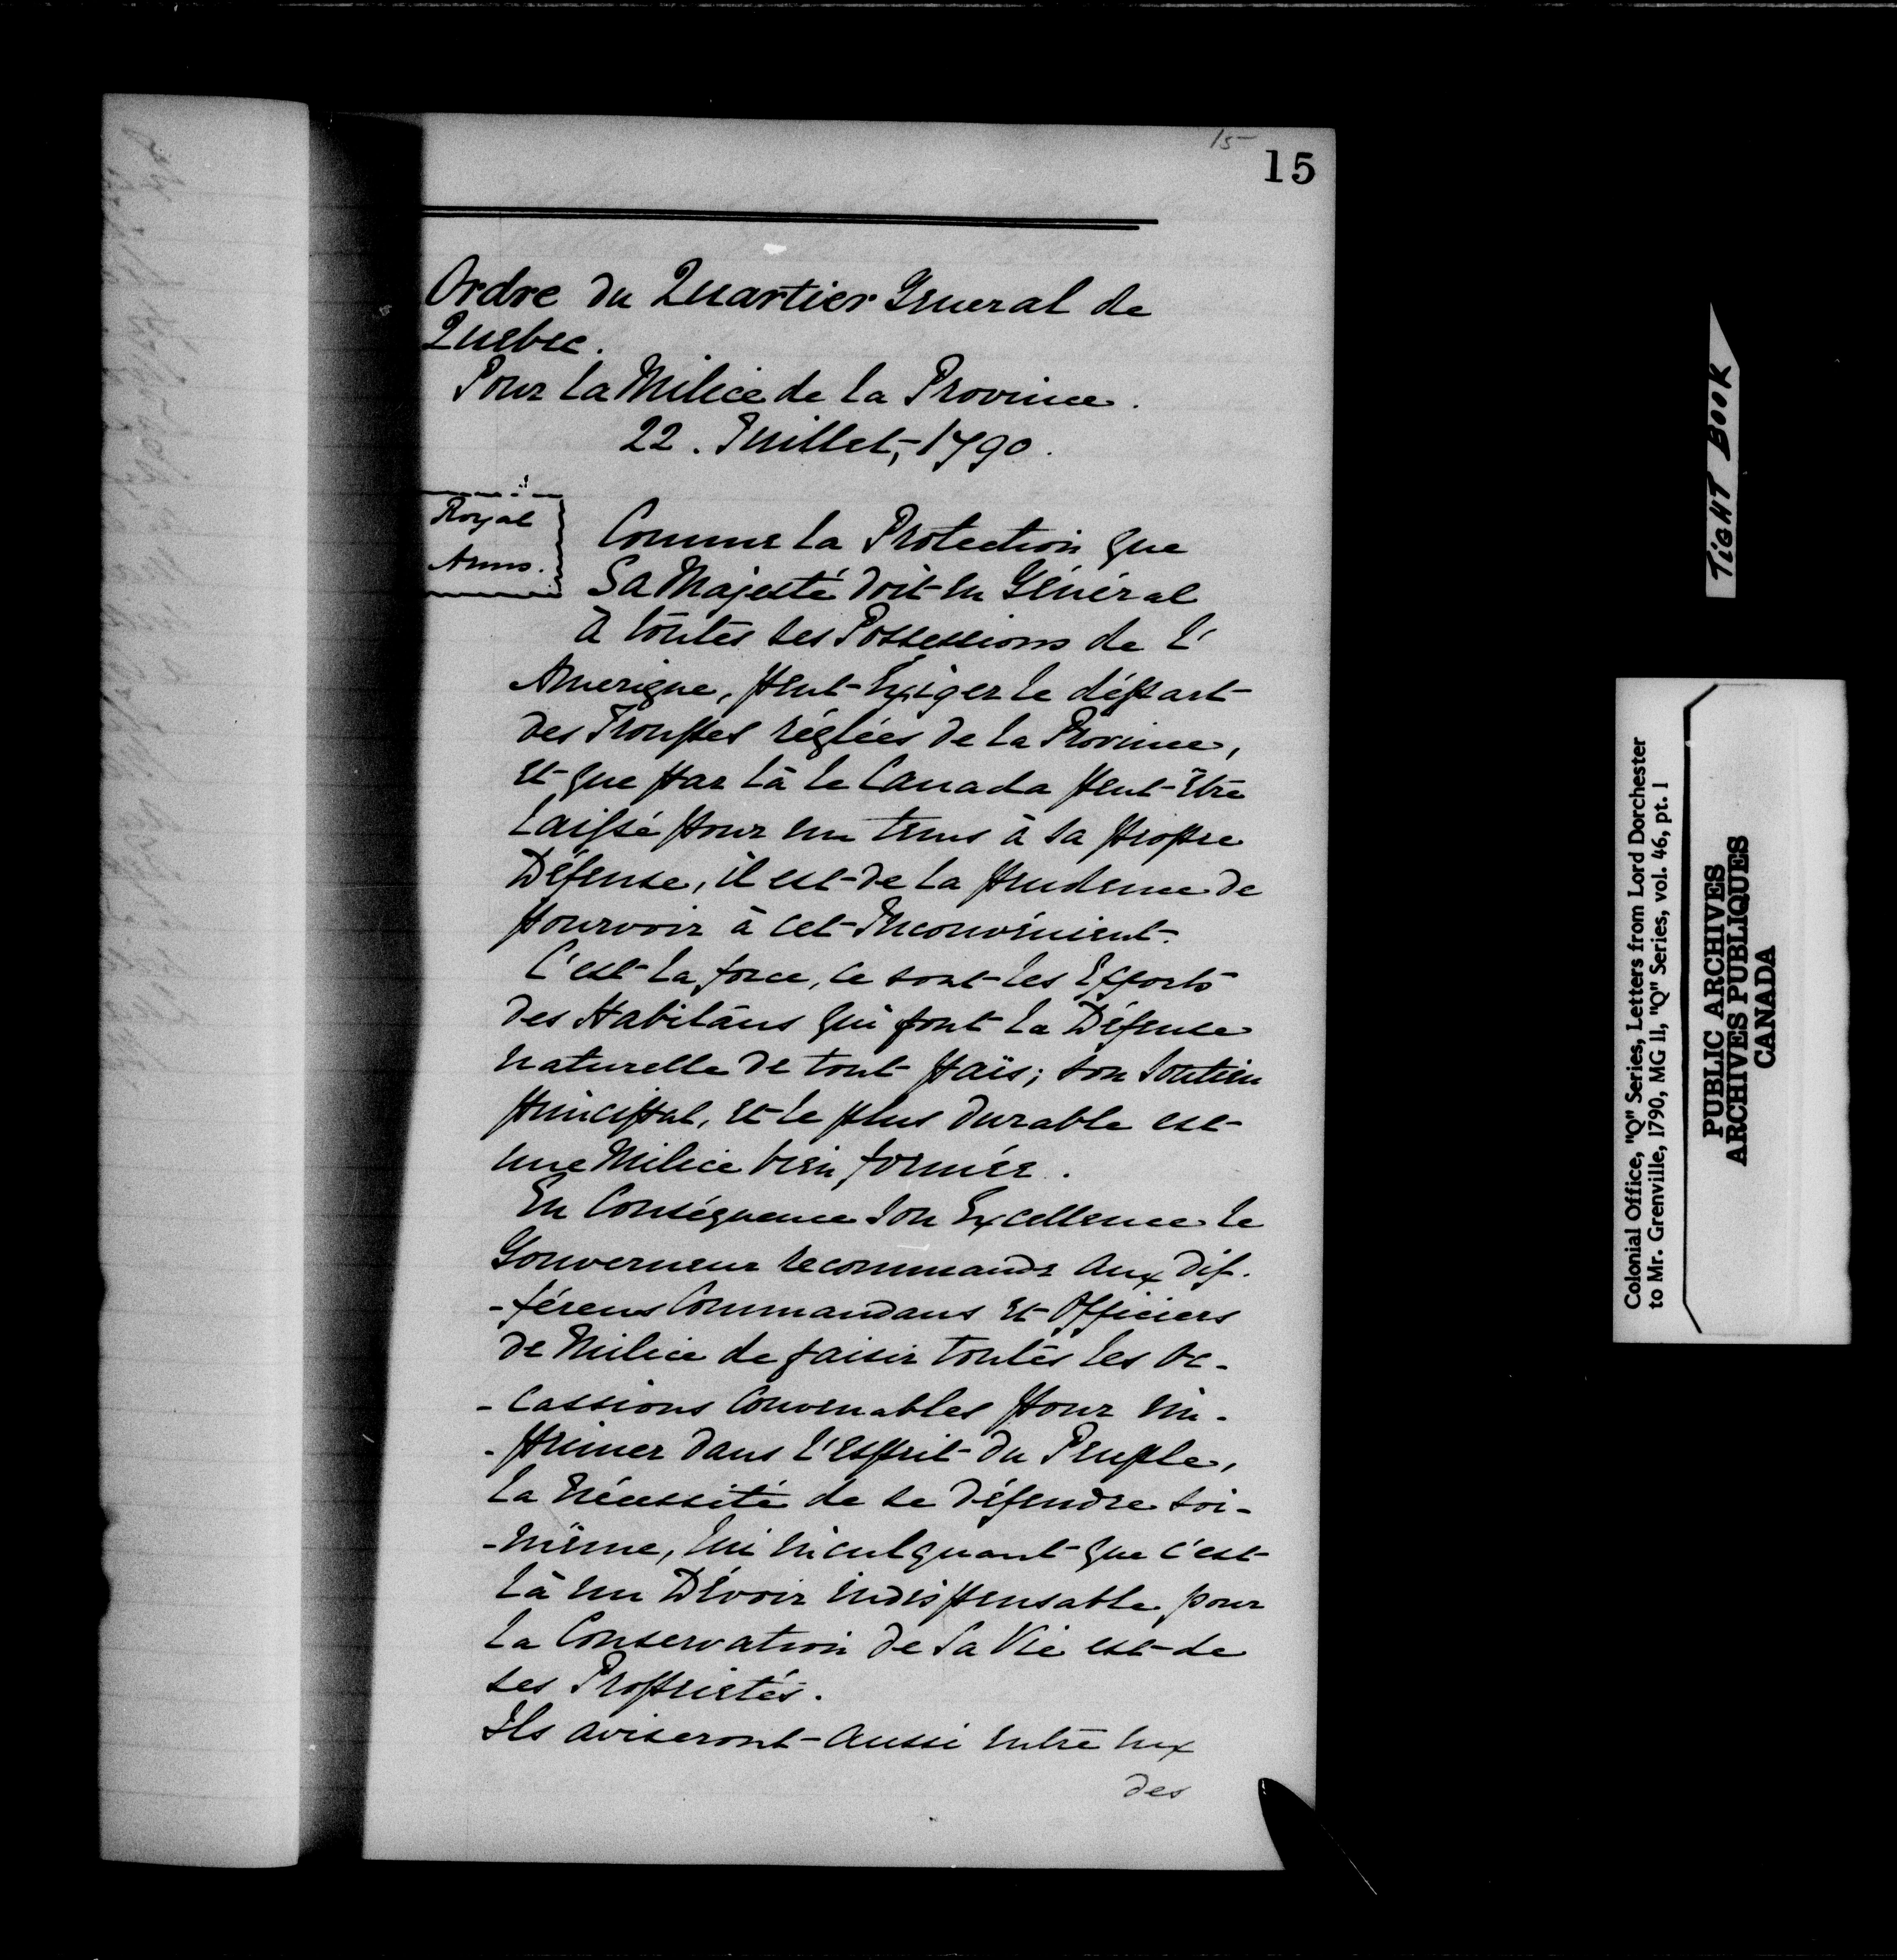 15
15
Ordre du Quartier General de
Quebec.
Pour la Milice de la Province.
22. Juillet, 1790.
Royal
Arms.
Comme la Protection que
Sa Majesté doit en Général
à toutes ses Possessions de l'
Amerique, peut Exiger le départ
des Trouppes réglées de la Province,
et que par là le Canada peut-être
laissé pour un tems à sa propre
Défense, il est de la prudence de
pourvoir à cet Inconvénient.
C'est la force, ce sont les Efforts
des Habitâns qui font la Défense
naturelle de tout païs; son Soutien
principal, et le plus durable est
une Milice bien formée.
En Conséquence Son Excellence le
Gouverneur recommande aux dif-
-férens Commandans et Officiers
de Milice de saisir toutes les Oc-
-cassions Convenables pour im-
-primer dans l'esprit du Peuple,
la nécessité de se défendre soi-
-même, lui inculquant que c'est
là un Dévoir indispensable pour
la Conservation de sa Vie est de
ses Proprietés.
Ils aviseront aussi entre eux
des
TIGHT BOOK
Colonial Office, "Q" Series, Letters from Lord Dorchester
to Mr. Grenville, 1790, MG 11, "Q" Series, vol. 46, pt. 1
PUBLIC ARCHIVES
ARCHIVES PUBLIQUES
CANADA